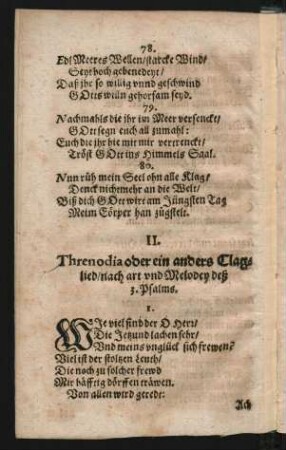 78.
Ed! Meeres Wellen/starcke Wind/
Seyt hoch gebenedeyt/
Daß ihr so willig vnd geschwind
GOtts willn gehorsam seyd.
79.
Nachmahls die ihr im Meer versenckt/
GOtt segn euch all zumahl:
Euch die ihr hie mit mir vertrenckt/
Tröst GOtt ins Himmels Saal.
80.
Nun rüh mein Seel ohn alle Klag/
Denck nicht mehr an die Welt/
Biß dich GOtt wirt am Jüngsten Tag
Meim Cörper han zugstelt.
II.
Threnodia oder ein anders Clag-
lied/nach art vnd Melodey deß
3. Psalms.
1.
WIe viel sind der O Herr/
Die Jetzund lachen sehr/
Vnd meins vnglück sich frewen?
Viel ist der stoltzen Leuth/
Die noch zu solcher frewd
Mir häfftig dörffen träwen.
Von allen wird geredt:
Ach